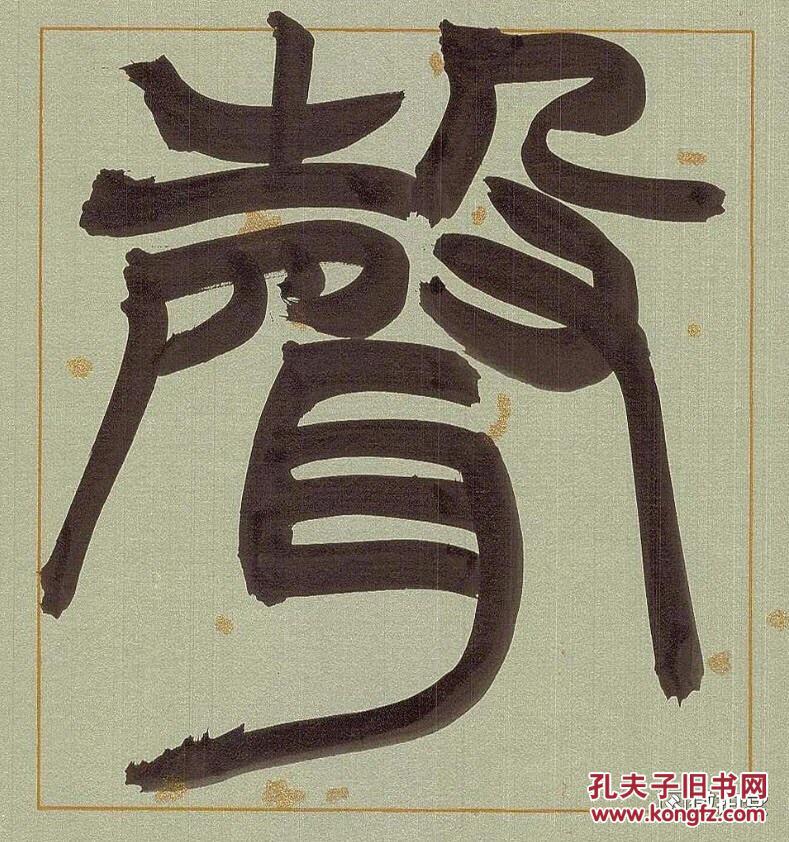 聲
孔夫子旧书网
www.kongfz.com